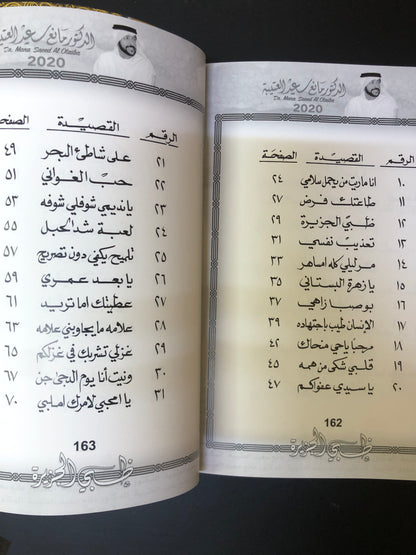 الدكتور مانع سعيد العتيبة
Dr. Mana Saeed Al Otaiba
2020
الرقم القصيدة الصفحة
١٠ انا ماريت من يحمل سلامي ٢٤
١١ طاعتك فرض ٢٧
١٢ ظبي الجزيرة ٢٩
١٣ تعذيب نفسي ٣١
١٤ مر ليلي كله اماهر ٣٣
١٥ يا زهرة البستاني ٣٥
١٦ بوصبا زاهي ٣٧
١٧ الإنسان طيب باجتهاده ٣٩
١٨ مرحبا ياحي منحاك ٤٢
١٩ قلبي شكى من همه ٤٥
٢٠ يا سيدي عفواكم ٤٧
162
ظبي الجزيرة
الدكتور مانع سعيد العتيبة
Dr. Mana Saeed Al Otaiba
2020
الرقم القصيدة الصفحة
٢١ على شاطئ البحر ٤٩
٢٢ حب الغواني ٥١
٢٣ يا نديمي شوفلي شوفه ٥٣
٢٤ لعبة شد الحبل ٥٥
٢٥ تلميح يكفي دون تصريح ٥٧
٢٦ يا بعد عمري ٥٩
٢٧ عطيتك اما تريد ٦١
٢٨ علامه ما يجاوبني علامه ٦٣
٢٩ غزلي تشربك في غزلكم ٦٥
٣٠ ونيت أنا يوم الدجى جن ٦٧
٣١ يا امحبي لامرك املبي ٧٠
163
ظبي الجزيرة